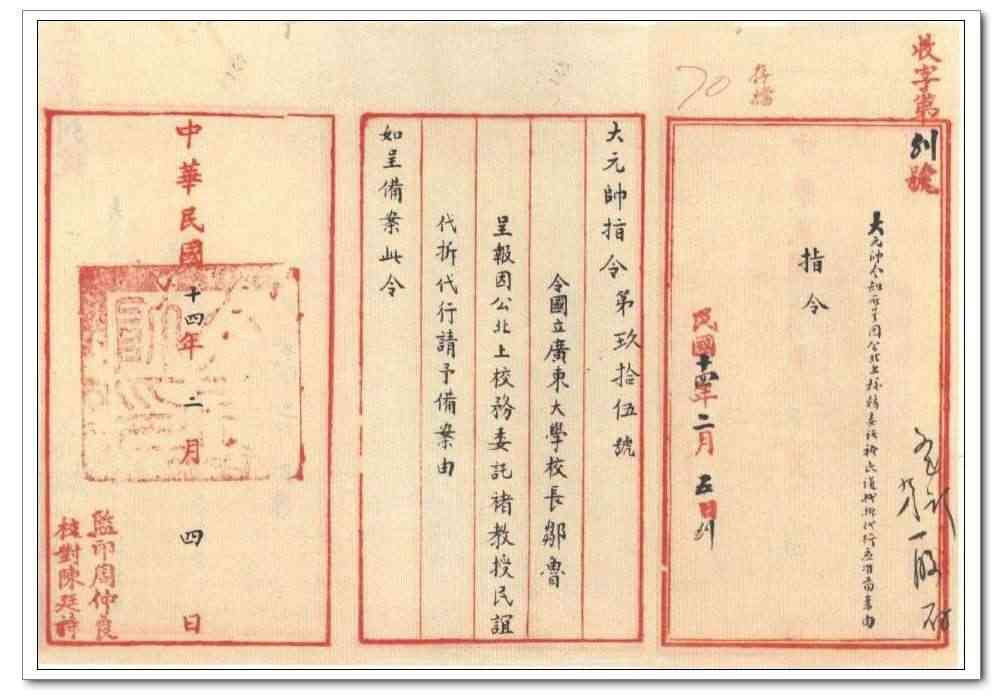 收字第81號
存檔
70
大元帥令知所呈因公北上校務委託褚民誼代拆代行應准備案由
指令
民國十四年二月五日到
大元帥指令第玖拾伍號
令國立廣東大學校長鄒魯
呈報因公北上校務委託褚教授民誼
代拆代行請予備案由
如呈備案此令
中華民國十四年二月四日
監印周仲良
校對陳廷詩